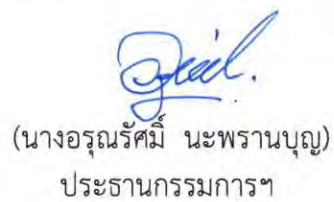 (นางอรุณรัศมิ์ นะพรานบุญ)
ประธานกรรมการฯ